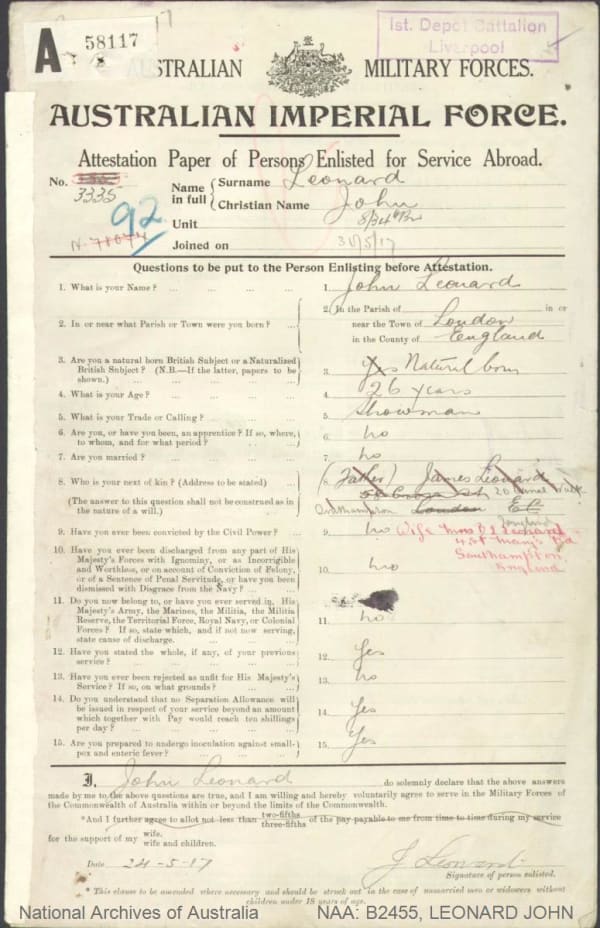 A 58117
1st. Depot Battalion
Liverpool
AUSTRALIAN MILITARY FORCES.
AUSTRALIAN IMPERIAL FORCE.
Attestation Paper of Persons Enlisted for Service Abroad.
No. 3335
92
N. 78074
Name in full { Surname Leonard
Christian Name John
Unit
Joined on 31/5/17
Questions to be put to the Person Enlisting before Attestation.
1. What is your Name? ... ... ... 1. John Leonard
2. In or near what Parish or Town were you born? ... 2. In the Parish of in or
near the Town of London
in the County of England
3. Are you a natural born British Subject or a Naturalized
British Subject? (N.B.—If the latter, papers to be
shown.) ... ... 3. Yes Natural born
4. What is your Age? ... ... ... 4. 26 years
5. What is your Trade or Calling? ... ... 5. Showman
6. Are you, or have you been, an apprentice? If so, where,
to whom, and for what period? ... ... 6. no
7. Are you married? ... ... ... 7. no
8. Who is your next of kin? (Address to be stated) ... 8. (Father) James Leonard
(The answer to this question shall not be construed as in
the nature of a will.) Southampton London EC
England
9. Have you ever been convicted by the Civil Power? ... 9. no Wife Mrs Leonard
St Mary's Rd
Southampton
England
10. Have you ever been discharged from any part of His
Majesty's Forces with Ignominy, or as Incorrigible
and Worthless, or on account of Conviction of Felony,
or of a Sentence of Penal Servitude, or have you been
dismissed with Disgrace from the Navy? ... 10. no
11. Do you now belong to, or have you ever served in, His
Majesty's Army, the Marines, the Militia, the Militia
Reserve, the Territorial Force, Royal Navy, or Colonial
Forces? If so, state which, and if not now serving,
state cause of discharge. 11. no
12. Have you stated the whole, if any, of your previous
service? ... 12. Yes
13. Have you ever been rejected as unfit for His Majesty's
Service? If so, on what grounds? ... 13. no
14. Do you understand that no Separation Allowance will
be issued in respect of your service beyond an amount
which together with Pay would reach ten shillings
per day? ... 14. Yes
15. Are you prepared to undergo inoculation against small-
pox and enteric fever? ... 15. Yes
I, John Leonard do solemnly declare that the above answers
made by me to the above questions are true, and I am willing and hereby voluntarily agree to serve in the Military Forces of
the Commonwealth of Australia within or beyond the limits of the Commonwealth.
*And I further agree to allot not less than two-fifths three-fifths of the pay payable to me from time to time during my service
for the support of my wife.
wife and children.
Date 24-5-17 J Leonard
Signature of person enlisted.
* This clause to be amended where necessary and should be struck out in the case of unmarried men or widowers without
children under 18 years of age.
National Archives of Australia NAA: B2455, LEONARD JOHN